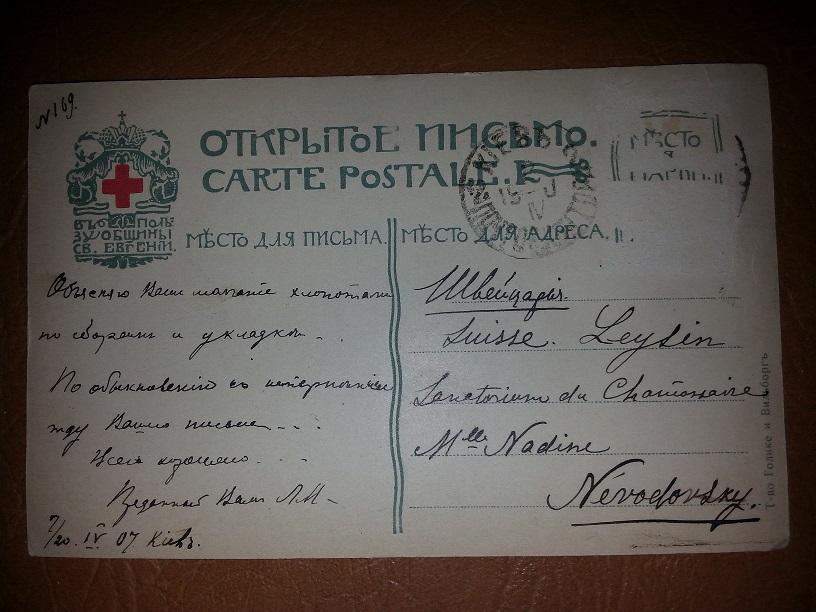 N 169.
ОТКРЫТОЕ ПИСЬМО.
CARTE POSTALE.
МѢСТО
ВЪ ПОЛЬ
ЗУ ОБЩИНЫ
СВ. ЕВГЕНІИ.
МѢСТО ДЛЯ ПИСЬМА.
МѢСТО ДЛЯ АДРЕСА.
КІЕВЪ
Объясняю Ваше молчаніе хлопотами
по сборамъ и укладкой . .
По обыкновенію съ нетерпѣніем
жду Вашего письма . . .
Всего хорошаго . .
Преданный Вамъ Л.М.
7/20 IV 07 Кіевъ.
Швейцарія.
Suisse. Leysin
Sanatorium du Chamossaire
Mlle Nadine
Névodovsky.
Т-во Голике и Вильборгъ